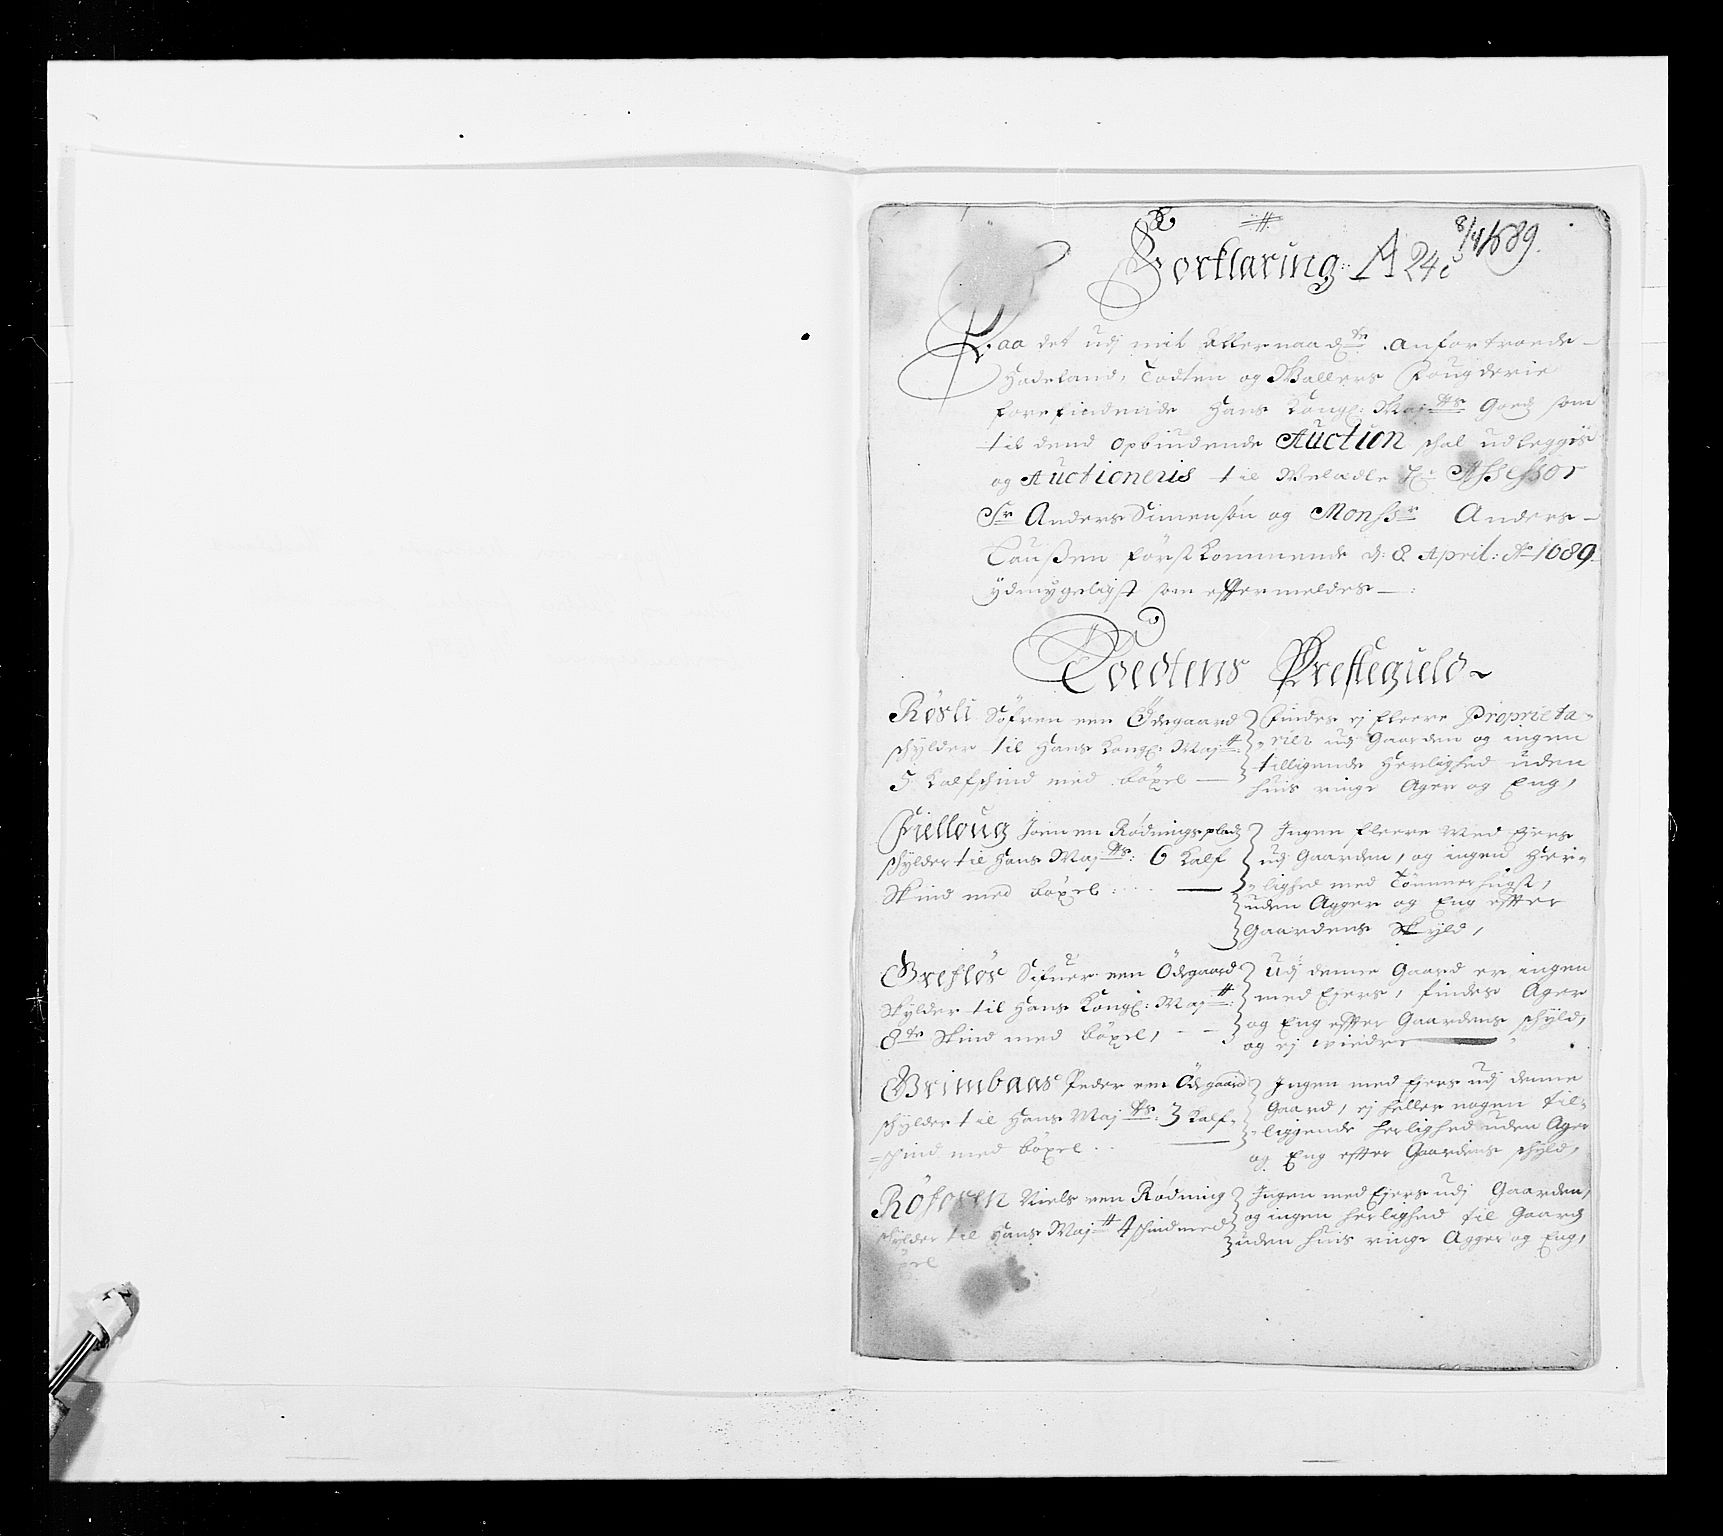 Forklaring
A 24c
8/4 1689.
Paa det udj mit allernaadste anfortroede
Hadeland, Todten og Wallers Fougderie
forefindende Hans Kongl: Maj:tts Godz som
til dend opbiudende Auction schal udleggis
og Auctioneris til Welædle Hr: Assessor
Sr Anders Simensøn og Monssr Anders
Clausßen førstkommende d: 8 April: Ao 1689
ydmygeligst som effermeldes
Toedtens Prestegield
Røsli Søfren een Ødegaard
schylder til Hans Kongl: Maj:tt
5 Kalfschind med bøxel
Findes ej fleere Proprieta-
-rier udj Gaarden og ingen
tilligende Herlighed uden
huis ringe Ager og Eng,
Fielloug Joen en Rødningsplads
schylder til Hans Maj:tts: 6 Kalf
Skind med bøxel
Ingen fleere Med Ejere
udj Gaarden, og ingen Her-
-lighed med Tømmerhugst,
uden Agger og Eng effter
Gaardens Skyld,
Grefløs Sifuer een Ødegaard
Skylder til Hans Kongl: Maj:tt:
8te Skind med bøxel,
Udj denne Gaard er ingen
med Ejere, findes Ager
og Eng effter Gaardens schyld,
og ej viedre
Grimbaas Peder een Ødegaard
schylder til Hans Maj:tts: 3 Kalf-
=schind med bøxel
Ingen med Ejere udj denne
Gaard, ej heller nogen til-
-liggende herlighed uden Ager
og Eng effter Gaardens schyld,
Niels een Rødning
schylder til Hans Maj:tt 4 schind med
bøxel
Ingen med Ejere udj Gaarden,
og ingen herlighed til Gaard
uden huis ringe Agger og Eng,